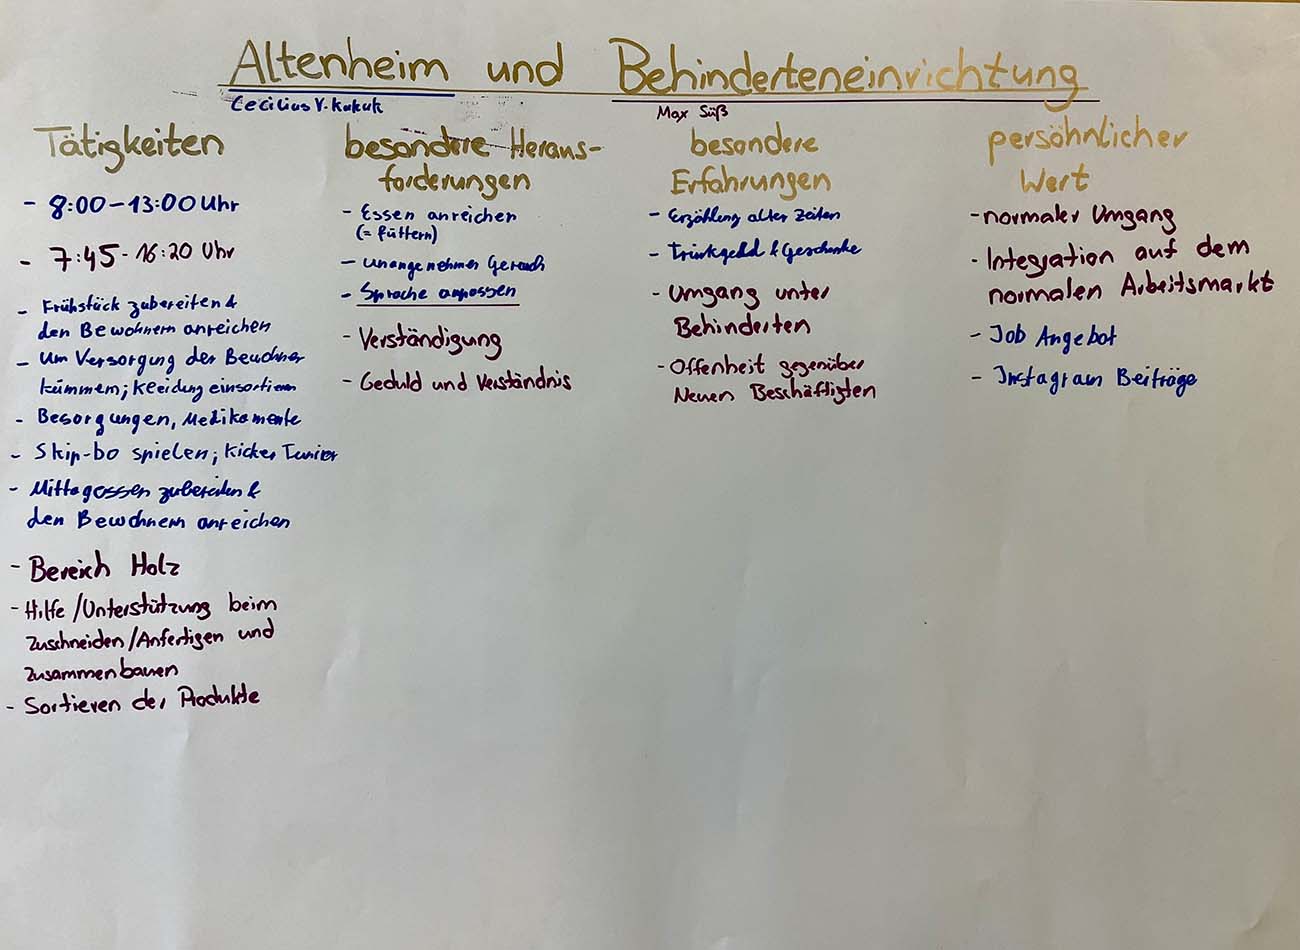 Altenheim und Behinderteneinrichtung
Cecilius V. Kukuk
Max Süß
Tätigkeiten
- 8:00-13:00 Uhr
- 7:45-16:20 Uhr
- Frühstück zubereiten &
den Bewohnern anreichen
- Um Versorgung der Bewohner
kümmern; Kleidung einsortieren
- Besorgungen, Medikamente
- Skip-bo spielen; Kicker Tunier
- Mittagessen zubereiten &
den Bewohnern anreichen
- Bereich Holz
- Hilfe/Unterstützung beim
Zuschneiden/Anfertigen und
zusammenbauen
- Sortieren der Produkte
besondere Heraus-
forderungen
- Essen anreichen
(= füttern)
- unangenehmer Geruch
- Sprache anpassen
- Verständigung
- Geduld und Verständnis
besondere
Erfahrungen
- Erzählung alter Zeiten
- Trinkgeld & Geschenke
- Umgang unter
Behinderten
- Offenheit gegenüber
Neuen Beschäftigten
persöhnlicher
Wert
- normaler Umgang
- Integration auf dem
normalen Arbeitsmarkt
- Job Angebot
- Instagram Beiträge